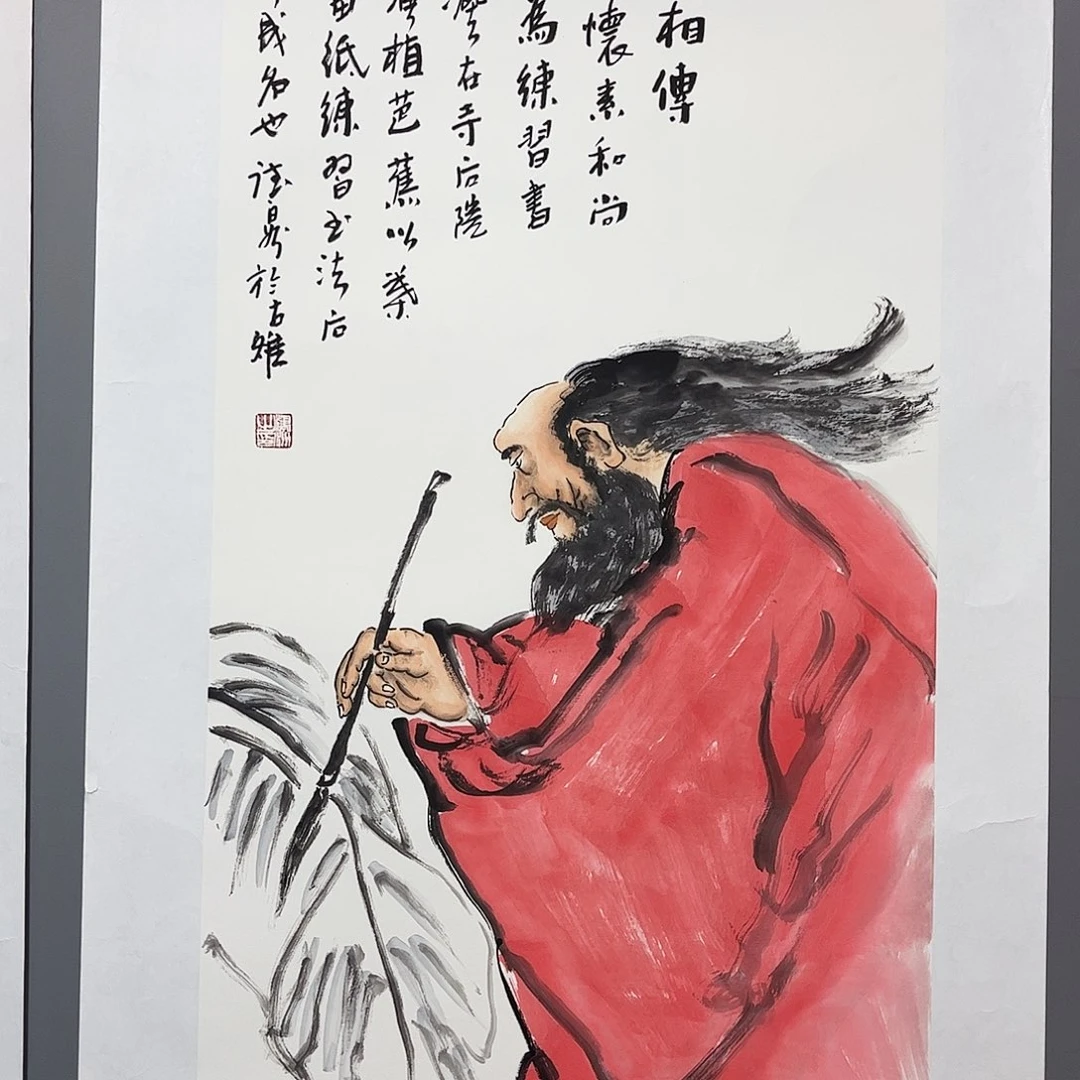 相傳
懷素和尚
為練習書
在寺后院
植芭蕉以葉
紙練習书法后
成名也
於古雅